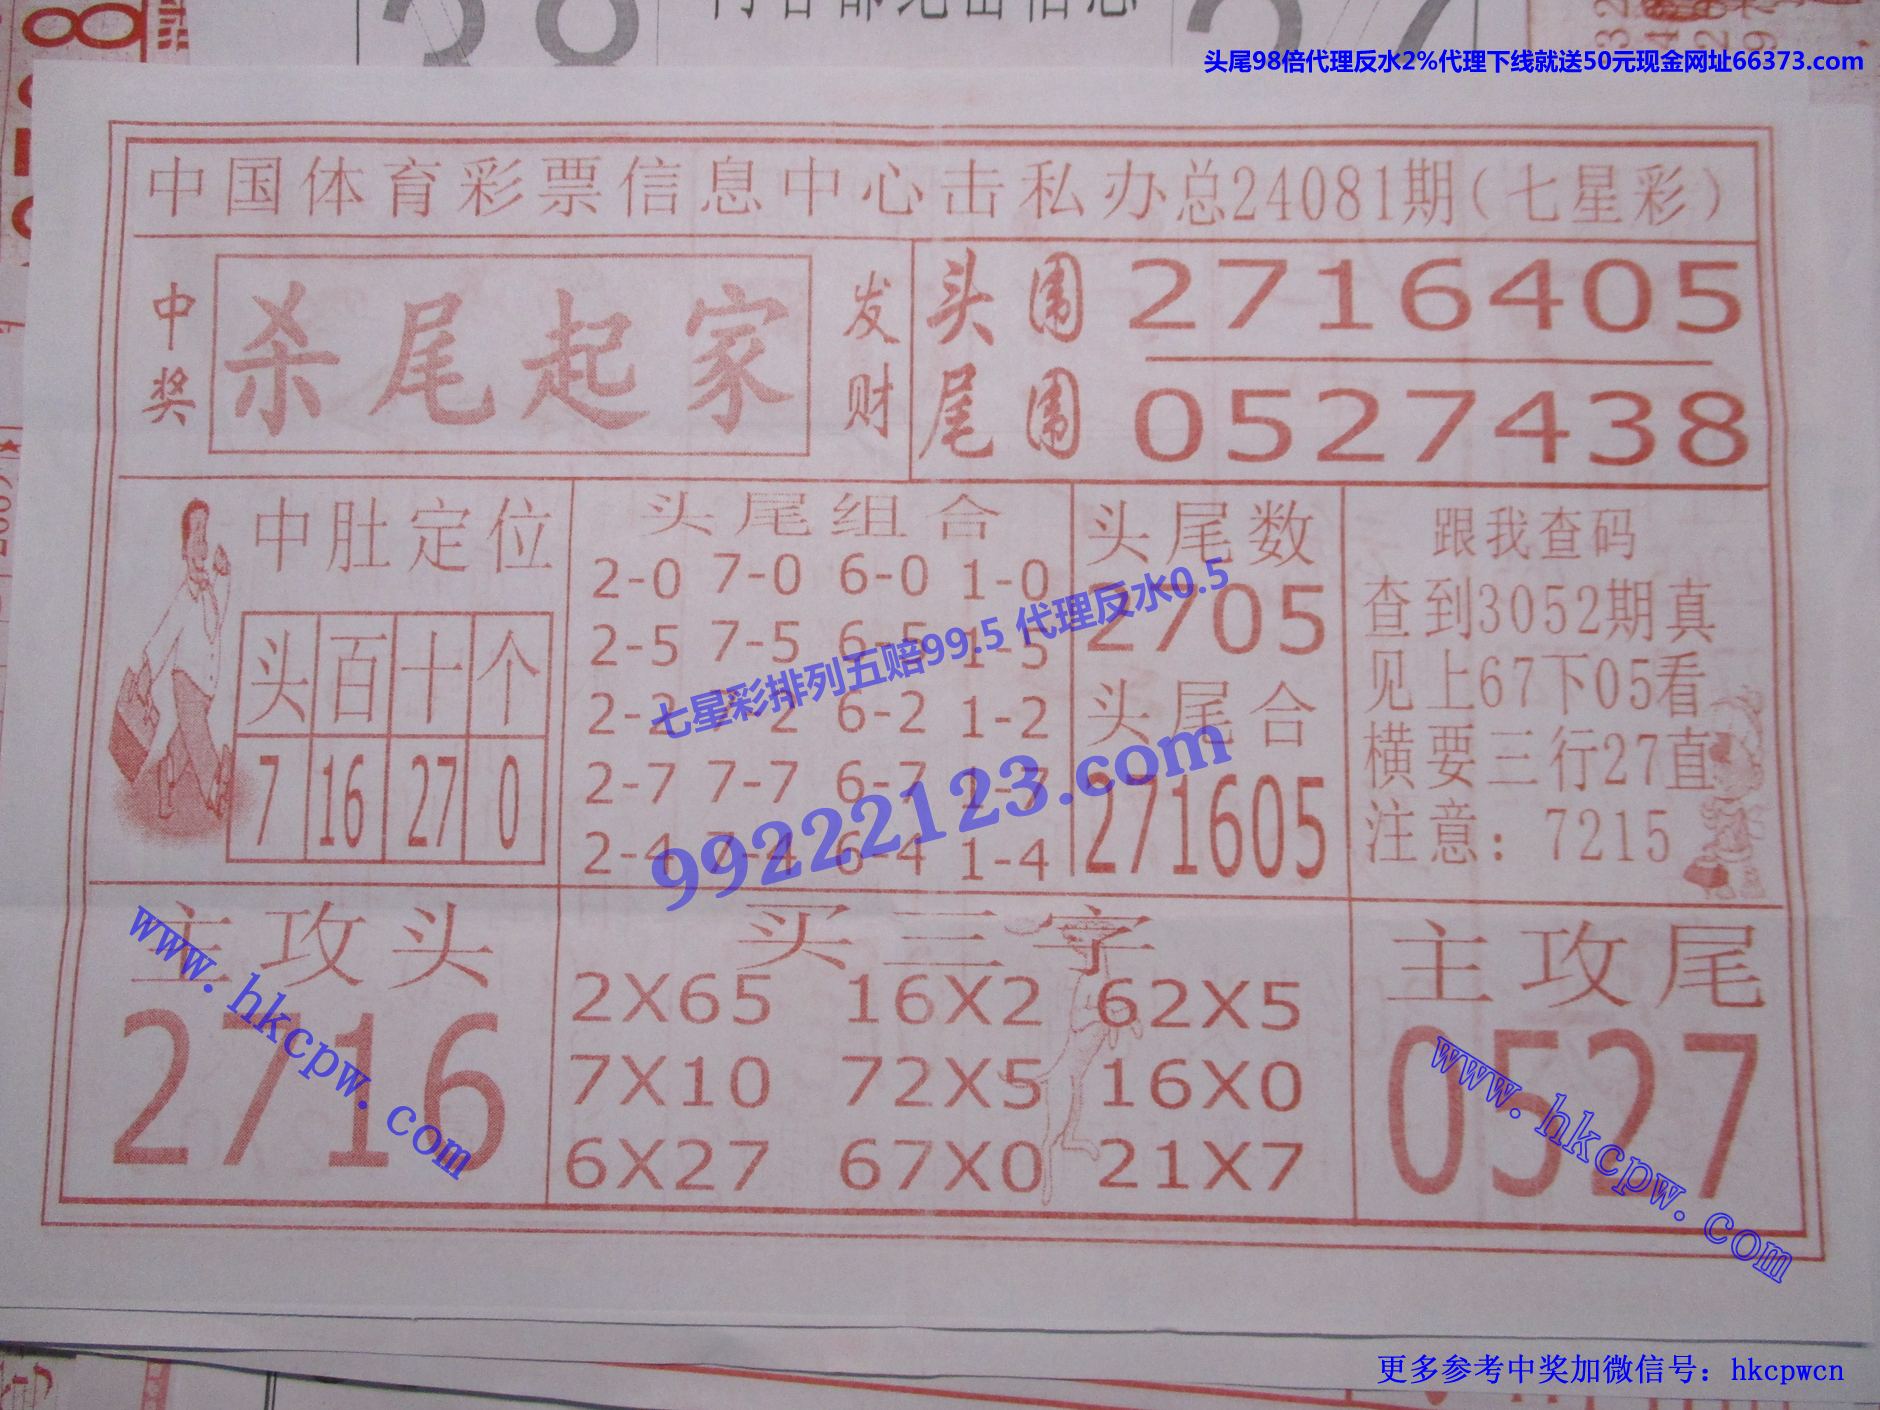 头尾98倍代理反水2%代理下线就送50元现金网址66373.com
中国体育彩票信息中心击私办总24081期(七星彩)
中奖
杀尾起家
发财
头围 2716405
尾围 0527438
中肚定位
头 百 十 个
7 16 27 0
头尾组合
2-0 7-0 6-0 1-0
2-5 7-5 6-5 1-5
2-2 7-2 6-2 1-2
2-7 7-7 6-7 1-7
2-4 7-4 6-4 1-4
头尾数
2705
头尾合
271605
跟我查码
查到3052期真
见上67下05看
横要三行27直
注意：7215
七星彩排列五赔99.5 代理反水0.5
99222123.com
主攻头
2716
买三字
2X65 16X2 62X5
7X10 72X5 16X0
6X27 67X0 21X7
主攻尾
0527
www.hkcpw.com
www.hkcpw.com
更多参考中奖加微信号：hkcpwcn